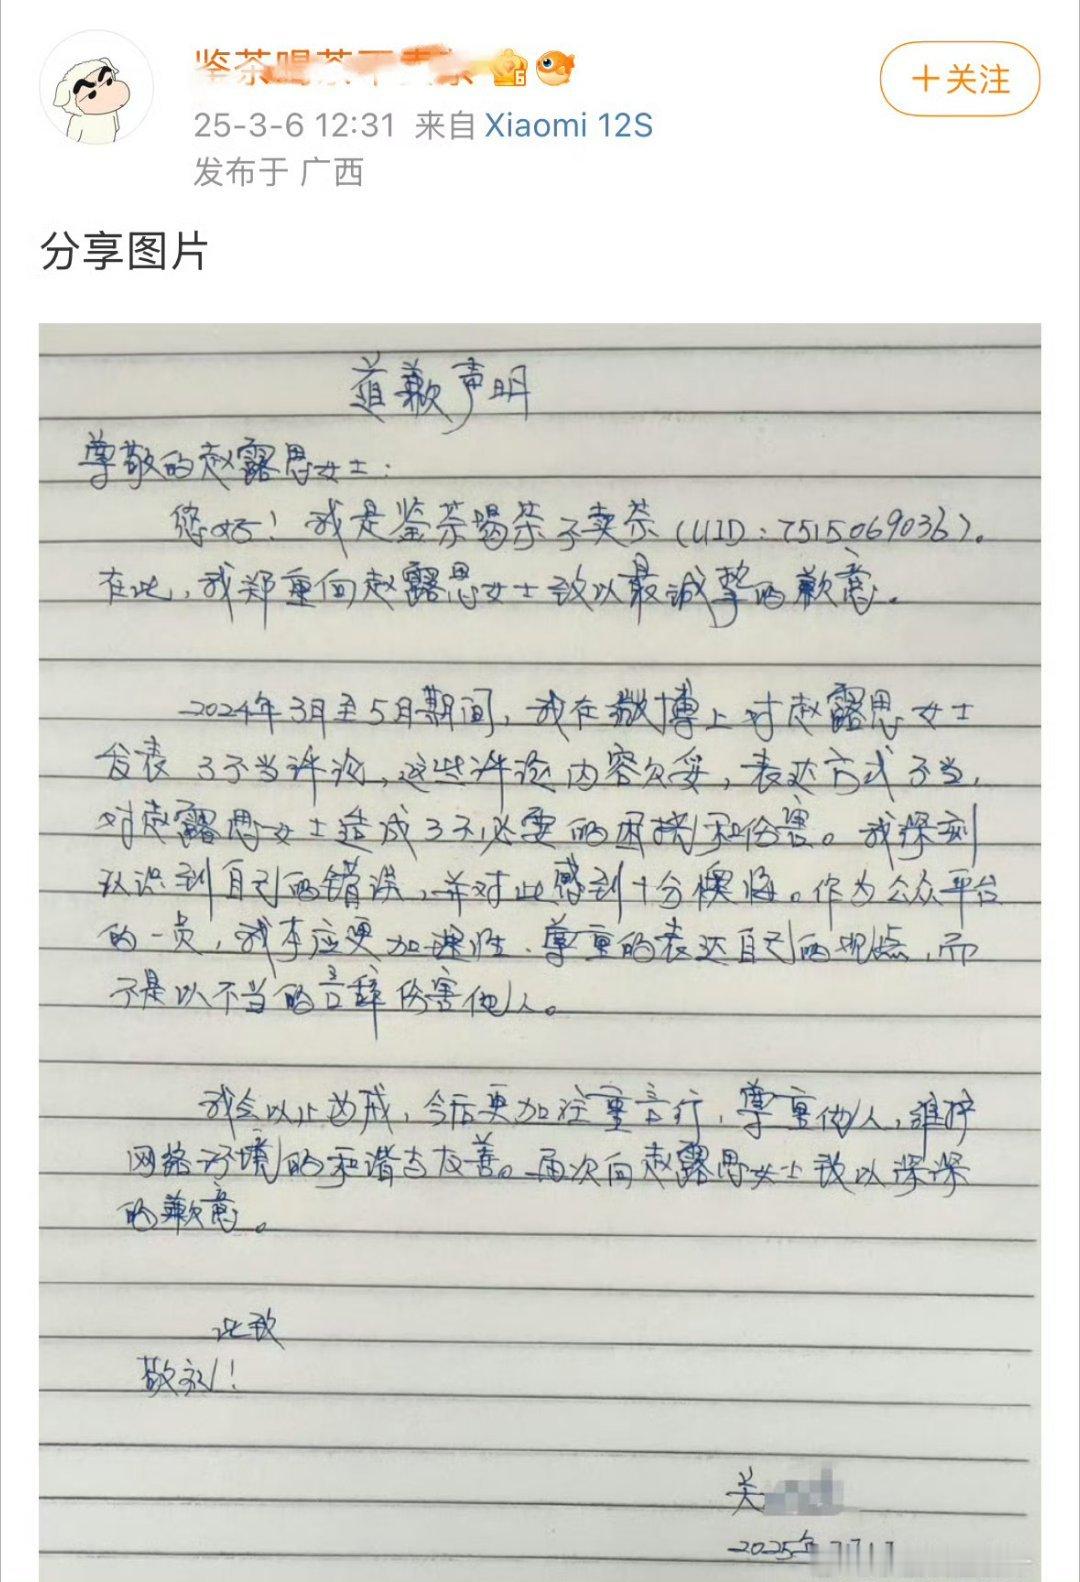 鉴茶喝茶
25-3-6 12:31 来自 Xiaomi 12S
发布于 广西
+关注
分享图片
道歉声明
尊敬的赵露思女士：
您好！我是鉴茶喝茶不卖茶（UID：7515069036）。
在此，我郑重向赵露思女士致以最诚挚的歉意。
2024年3月至5月期间，我在微博上对赵露思女士
发表了不当评论，这些评论内容欠妥，表达方式不当，
对赵露思女士造成了不必要的困扰和伤害。我深刻
认识到自己的错误，并对此感到十分懊悔。作为公众平台
的一员，我本应更加理性、尊重的表达自己的观点，而
不是以不当的言辞伤害他人。
我会以此为戒，今后更加注重言行，尊重他人，维护
网络环境的和谐与友善。再次向赵露思女士致以深深
的歉意。
此致
敬礼！
关
2025年